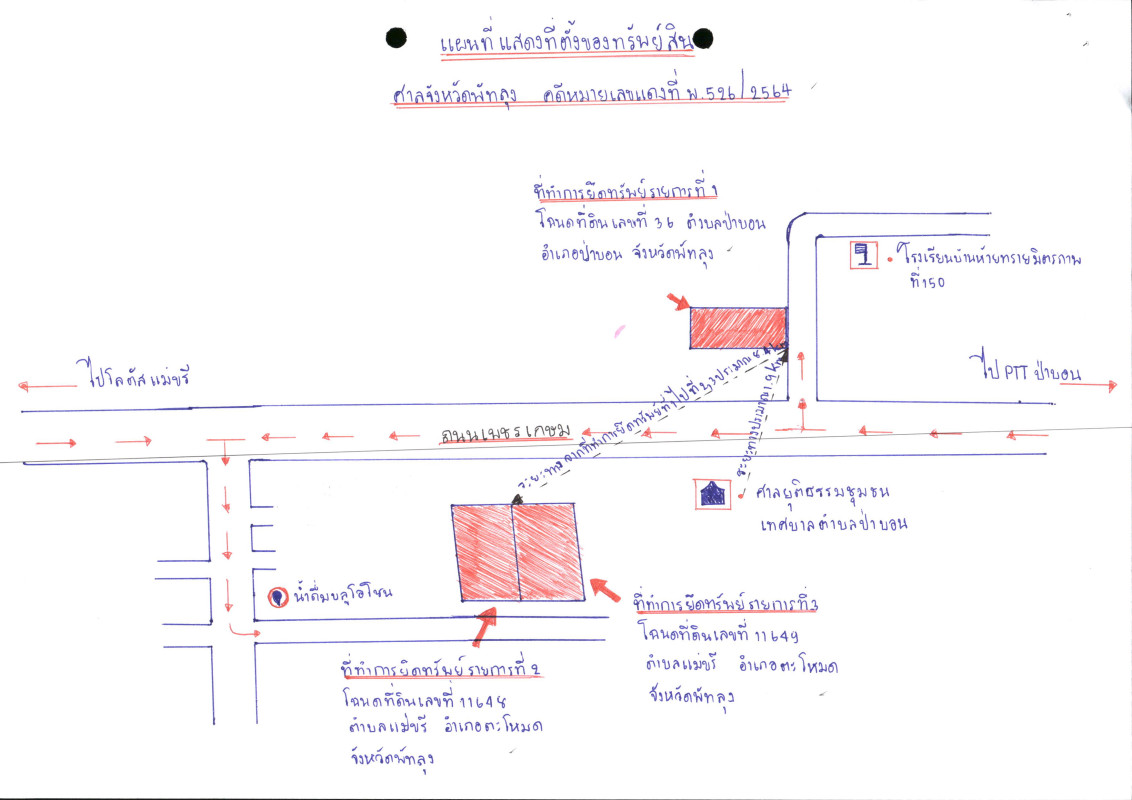 แผนที่ แสดงที่ตั้งของทรัพย์สิน
ศาลจังหวัดพัทลุง คดีหมายเลขแดงที่ พ.526/2564
ที่ทำการยึดทรัพย์รายการที่ 1
โฉนดที่ดินเลขที่ 36 ตำบลป่าบอน
อำเภอป่าบอน จังหวัดพัทลุง
โรงเรียนบ้านห้วยทรายมิตรภาพ
ที่ 150
ไปโลตัสแม่ขรี
ไป PTT ป่าบอน
ถนนเพชรเกษม
ระยะทางจากที่ทำการยึดทรัพย์ที่ 1 ไปที่ 2,3 ประมาณ 8.4 km
ระยะทางประมาณ 1.9 km
ศาลยุติธรรมชุมชน
เทศบาลตำบลป่าบอน
น้ำดื่มบลูโอโซน
ที่ทำการยึดทรัพย์รายการที่ 3
โฉนดที่ดินเลขที่ 11649
ตำบลแม่ขรี อำเภอตะโหมด
จังหวัดพัทลุง
ที่ทำการยึดทรัพย์รายการที่ 2
โฉนดที่ดินเลขที่ 11648
ตำบลแม่ขรี อำเภอตะโหมด
จังหวัดพัทลุง